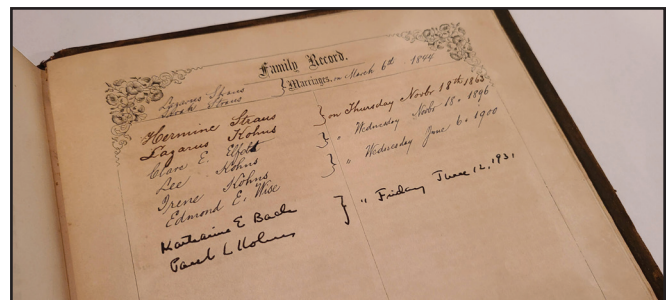 Family Record.
Marriages. on March 6th 1844
Straus
Hermine Straus
Lazarus Kohns } on Thursday Novbr 18th 1863
Clare E.
Lee Kohns } " Wednesday Novbr 18. 1896
Irene Kohns
Edmond E. Wise } " Wednesday June 6. 1900
Katharine E Bache
L Kohns } " Friday June 12, 1931